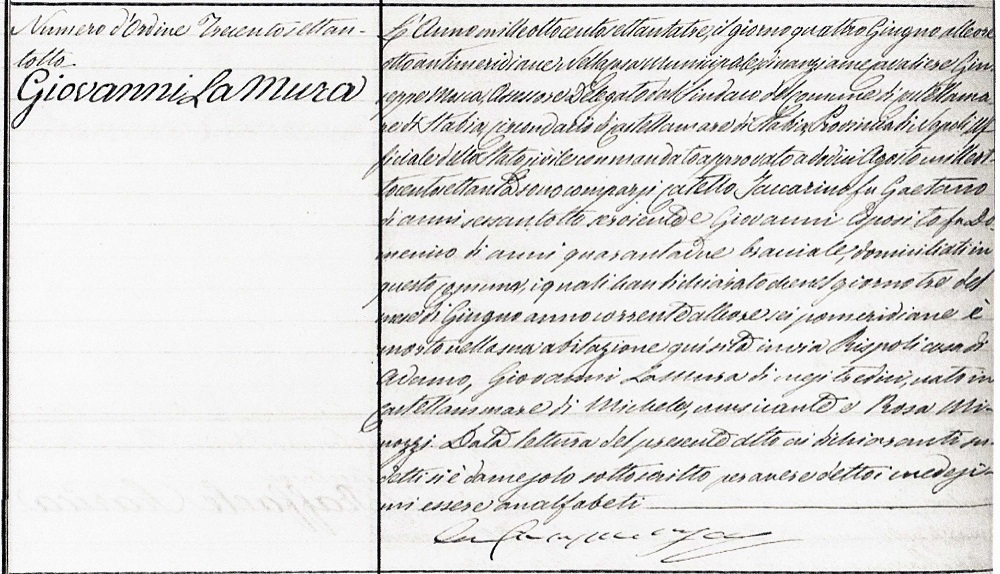 Numero d'Ordine Trecentosettan-
totto
Giovanni La Mura
L'Anno milleottocentosettantatre, il giorno quattro Giugno alle ore
otto antimeridiane nella casa Municipale, innanzi a me Cavaliere Giu-
seppe Assessore Delegato dal Sindaco del Comune di Castellamma-
re di Stabia, Circondario di Castellamare di Stabia, Provincia di Napoli, Uf-
ficiale dello Stato Civile con mandato approvato a dodici Agosto milleot-
tocentosettanta sono comparsi Catello Iaccarino fu Gaetano
di anni sessantotto serviente e Giovanni Esposito fu Do-
menico di anni quarantadue bracciale, domiciliati in
questo Comune, i quali han dichiarato che nel giorno tre del
mese di Giugno anno corrente alle ore sei pomeridiane è
morto nella sua abitazione qui sita in via Rispoli casa di
Adamo, Giovanni La Mura di mesi tredici, nato in
Castellammare di Michele, musicante e Rosa Mi-
nozzi. Data lettura del presente atto ai dichiaranti su-
detti si è da me solo sottoscritto per avere detto i medesi-
mi essere analfabeti